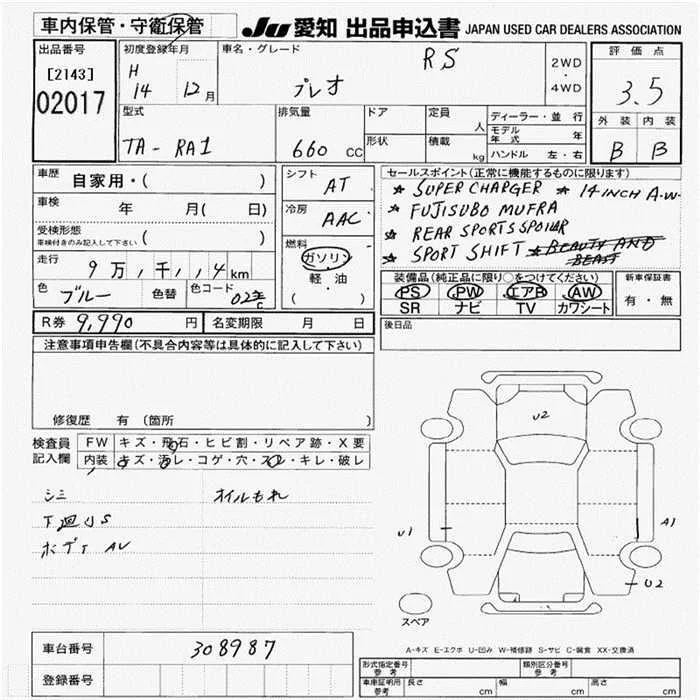 車内保管・守衛保管
JU 愛知 出品申込書 JAPAN USED CAR DEALERS ASSOCIATION
出品番号
[2143]
02017
初度登録年月
H
14 12月
車名・グレード
プレオ RS
2WD
・
4WD
評価点
3.5
外装 内装
B B
型式
TA-RA1
排気量
660 CC
ドア
形状
定員 人
積載 kg
ディーラー・並行
モデル年式 年
ハンドル 左・右
車歴 自家用・( )
車検 年 月( 日)
受検形態
車検付きのみ記入して下さい ( )
走行 9万, 千, , 4km
色 ブルー 色替 色コード
R券 9,990 円 名変期限 月 日
シフト AT
冷房 AAC
燃料
ガソリン
軽・油
( )
セールスポイント(正常に機能するものに限ります)
★ SUPER CHARGER ★ 14 INCH A.W.
★ FUJISUBO MUFRA
★ REAR SPORTS SPOILAR
★ SPORT SHIFT ★ BEAUTY AND BEAST
装備品(純正品に限り○をつけてください)
PS PW エアB AW
SR ナビ TV カワシート
新車保証書
有・無
後日品
注意事項申告欄(不具合内容等は具体的に記入して下さい)
修復歴 有 (箇所 )
検査員
記入欄
FW キズ・飛石・ヒビ割・リペア跡・X要
内装 キズ・汚レ・コゲ・穴・スレ・キレ・破レ
シミ オイルもれ
下廻りS
ボディ AU
U2
U1
A1
U2
スペア
A-キズ E-エクボ U-凹み W-補修跡 S-サビ C-腐食 XX-交換済
車台番号 308987
登録番号
形式指定番号
参考
類別区分番号
参考
車庫証明用
参考
長さ cm 幅 cm 高さ cm